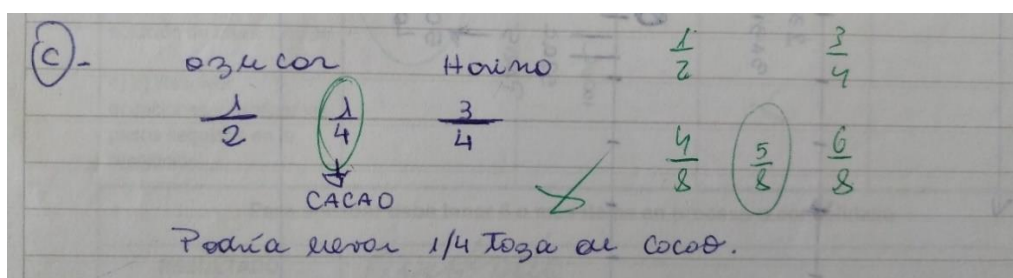 C-
azucar Harina 1/2 3/4
1/2 1/4 3/4
4/8 5/8 6/8
CACAO
Podría llevar 1/4 Taza de cacao.